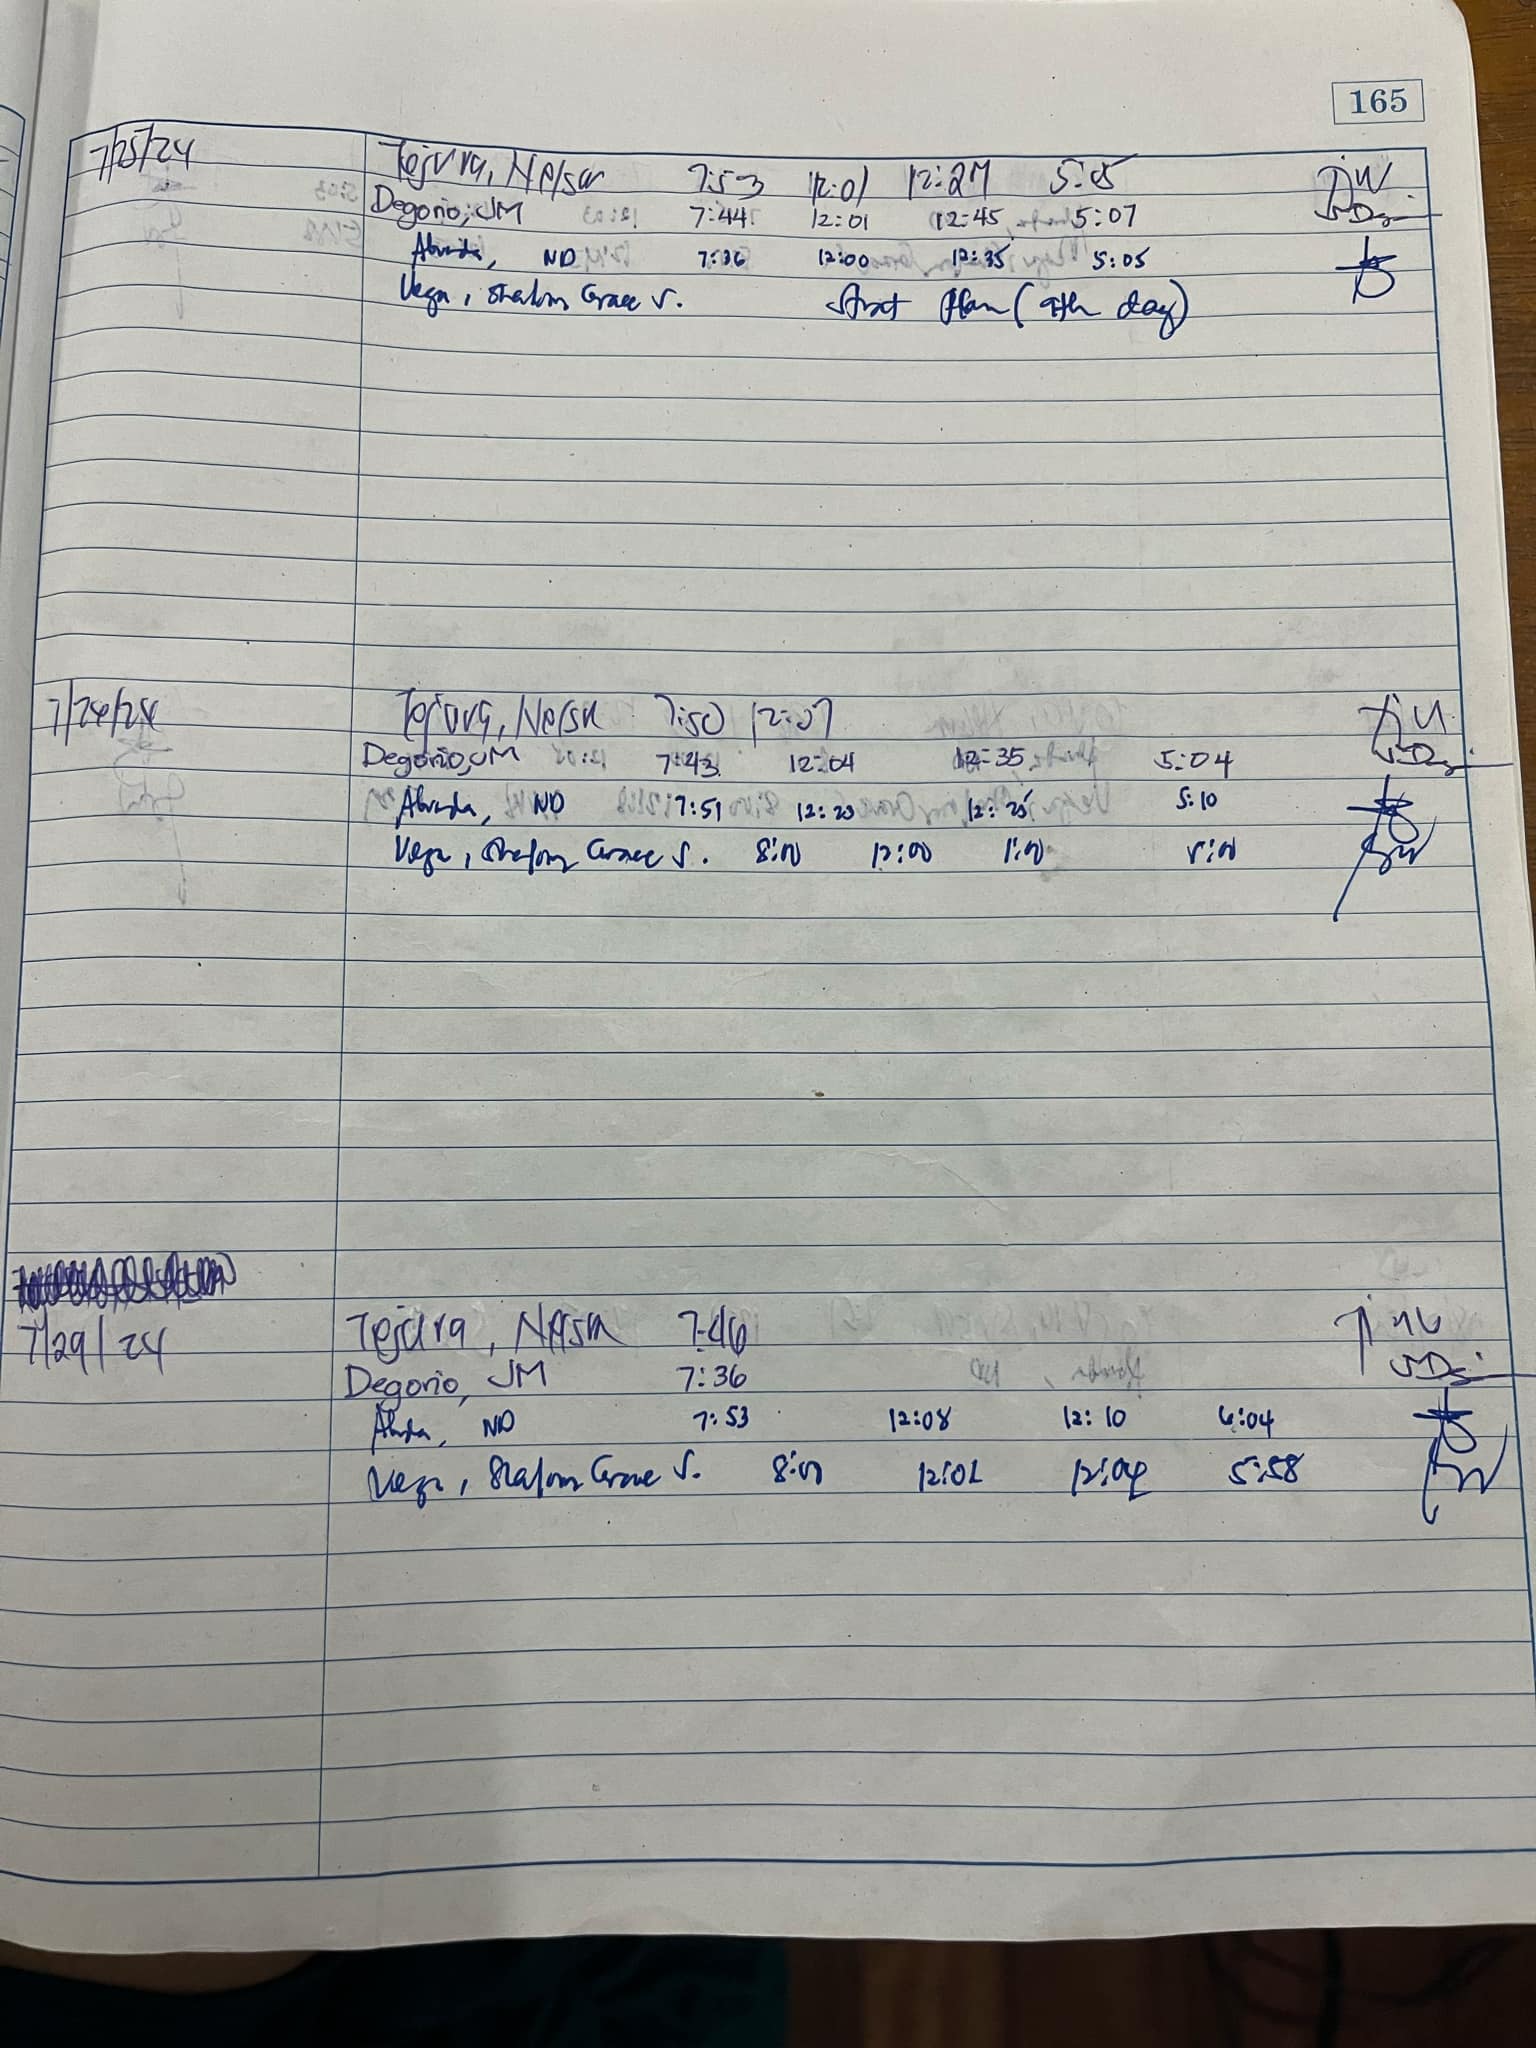 165
7/25/24 Tejura, Nelson 7:53 12:01 12:27 5:05
Degorio, JM 7:44 12:01 12:45 5:07
Abrada, ND 7:36 12:00 12:35 5:05
Vega, Shalom Grace S. Strat Plan (4th day)
7/26/24 Tejura, Nelson 7:50 12:07
Degorio, JM 7:43 12:04 12:35 5:04
Abrada, ND 7:51 12:23 12:25 5:10
Vega, Shalom Grace S. 8:00 12:00 1:00 5:00
7/29/24 Tejura, Nelson 7:46
Degorio, JM 7:36
ND 7:53 12:08 12:10 6:04
Vega, Shalom Grace S. 8:00 12:02 12:04 5:58